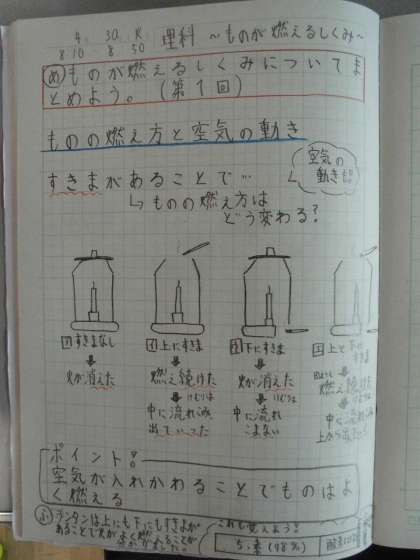 理科 ~ものが燃えるしくみ~
め ものが燃えるしくみについてま
とめよう。(第1回)
ものの燃え方と空気の動き
空気の
動き
すきまがあることで…
↳ものの燃え方は
どう変わる?
ア すきまなし
火が消えた
イ 上にすきま
燃え続けた
けむりは
中に流れこみ
出ていった
下にすきま
火が消えた
けむりは
中に流れ
こまない
上と下に
すきま
燃え続けた
けむりは
中に流れこみ
ポイント!
空気が入れかわることでものはよ
く燃える
ランタンは上にも下にもすきまが
あることで火がよく燃える
これも覚えよう!
ちっ素(78%)